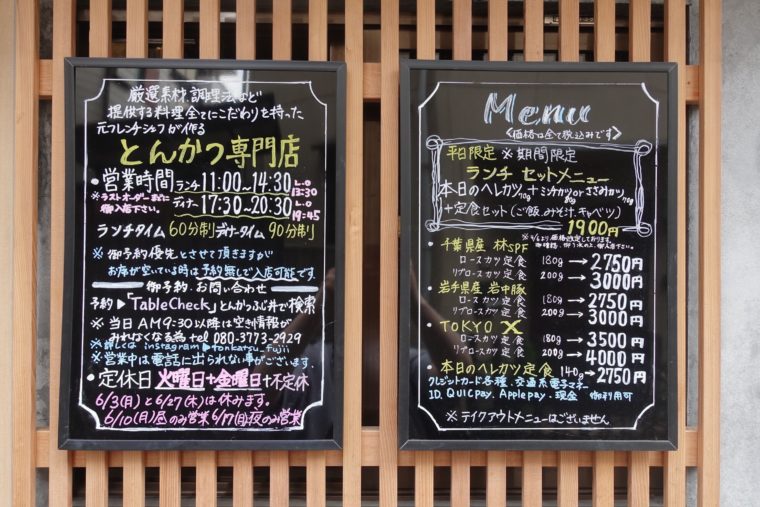 厳選素材、調理法など
提供する料理全てにこだわりを持った
元フレンチシェフが作る
とんかつ専門店
・営業時間 ランチ 11:00〜14:30 L.O 13:30
※ラストオーダーまでに御入店下さい。
ディナー 17:30〜20:30 L.O 19:45
ランチタイム 60分制 ディナータイム 90分制
※御予約優先とさせて頂きますが
お席が空いている時は予約無しで入店可能です
御予約、お問い合わせ
予約▶「TableCheck」とんかつふじ井で検索
※当日AM9:30以降は空き情報が
みれなくなる為 tel 080-3773-2929
※詳しくは instagram▶tonkatsu_fujii
※営業中は電話に出られない事がございます.
・定休日 火曜日+金曜日+不定休
6/3(月)と6/27(木)は休みます。
6/10(月)昼のみ営業 6/17(月)夜のみ営業
Menu
<価格は全て税込みです>
平日限定 ※期間限定
ランチ セットメニュー
本日のヘレカツ70g+ミンチカツorささみカツ
+定食セット(ご飯、みそ汁、キャベツ)
1900円
・千葉県産 林SPF
ロースカツ定食 180g→2750円
リブロースカツ定食 200g→3000円
・岩手県産 岩中豚
ロースカツ定食 180g→2750円
リブロースカツ定食 200g→3000円
・TOKYO X
ロースカツ定食 180g→3500円
リブロースカツ定食 200g→4000円
・本日のヘレカツ定食 140g→2750円
クレジットカード各種、交通系電子マネー
ID、QUICpay、Applepay・現金 御利用可
※テイクアウトメニューはございません